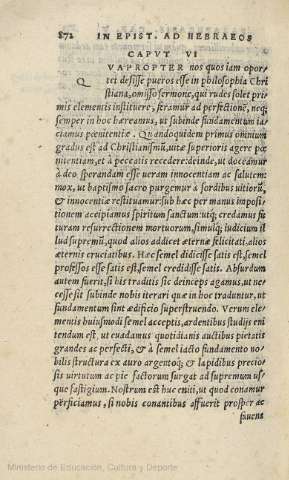 872 IN EPIST. AD HEBRAEOS
CAPVT VI
QVAPROPTER nos quos iam opor
tet desisse pueros esse in philosophia Chri
stiana, omisso sermone, qui rudes solet pri
mis elementis instituere, feramur ad perfectionẽ, neq;
semper in hoc hæreamus, ut subinde fundamentum ia
ciamus pœnitentiæ. Quandoquidem primus omnium
gradus est ad Christianismũ, uitæ superioris agere pœ
nitentiam, et à peccatis recedere: deinde, ut doceamur
à deo sperandam esse ueram innocentiam ac salutem:
mox, ut baptismo sacro purgemur à sordibus uitiorũ,
& innocentiæ restituamur: sub hæc per manus imposi
tionem accipiamus spiritum sanctum: utiq; credamus fu
turam resurrectionem mortuorum, simulq; iudicium il
lud supremũ, quod alios addicet æternæ felicitati, alios
æternis cruciatibus. Hæc semel didicisse satis est, semel
professos esse satis est, semel credidisse satis. Absurdum
autem fuerit, si his traditis sic deinceps agamus, ut ne
cesse sit subinde nobis iterari quæ in hoc traduntur, ut
fundamentum sint ædificio superstruendo. Verum ele
mentis huiusmodi semel acceptis, ardentibus studijs eni
tendum est, ut euadamus quotidianis auctibus pietatis
grandes ac perfecti, & à semel iacto fundamento no
bilis structura ex auro argentoq; & lapidibus precio
sis uirtutum ac pie factorum surgat ad supremum us
que fastigium. Nostrum est huc eniti, ut quod conamur
perficiamus, si nobis conantibus affuerit prosper ac
fauens
Ministerio de Educación, Cultura y Deporte